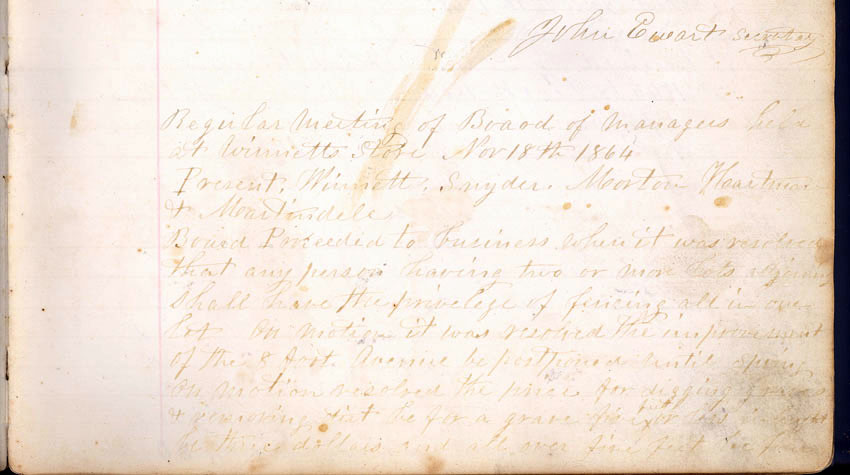 John Ewart Secretary
Regular meeting of Board of managers held
at Winnetts Store Nov 18th 1864
Present, Winnett, Snyder, Morton Hartman
& Martindale
Board Proceeded to business when it was resolved
that any person having two or more lots adjoining
shall have the privelege of fencing all in one
lot On motion it was resolved the improvement
of the 8 foot Avenue be postponed until spring
On motion resolved the price for digging graves
& removing dirt be for a grave five feet or
be three dollars and all over five feet